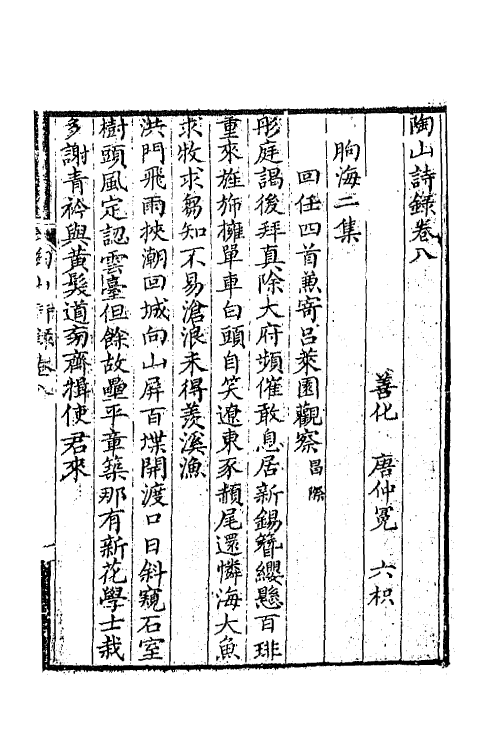 陶山詩錄卷八
善化　唐仲冕　六枳
朐海二集
回任四首兼寄呂萊園觀察昌際
彤庭謁後拜真除大府頻催敢息居新錫簪纓懸百琲
重來旌旆擁單車白頭自笑遼東豕頳尾還憐海大魚
求牧求芻知不易滄浪未得羨溪漁
洪門飛雨挾潮回城向山屏百堞開渡口日斜窺石室
樹頭風定認雲臺但餘故壘平章築那有新花學士栽
多謝青衿與黃髮道旁齊揖使君來